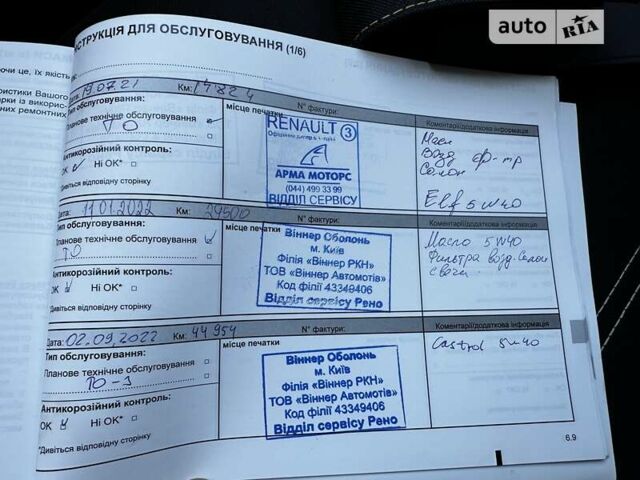 auto RIA
СТРУКЦІЯ ДЛЯ ОБСЛУГОВУВАННЯ (1/6)
ючи це, їх якість
ристики Вашого
рки із викорис-
них ремонтних
19.07.21 Км:
Тип обслуговування: місце печатки N° фактури: Коментарі/додаткова інформація
Планове технічне обслуговування
ТО
Антикорозійний контроль:
ОК Ні ОК*
*Дивіться відповідну сторінку
RENAULT 3
АРМА МОТОРС
(044) 499 33 99
ВІДДІЛ СЕРВІСУ
Масл
Возд ф-тр
Салон
Elf 5W40
Дата: 11.01.2022 Км: 29500 N° фактури: Коментарі/додаткова інформація
Тип обслуговування: місце печатки
Планове технічне обслуговування
ТО
Антикорозійний контроль:
ОК Ні ОК*
*Дивіться відповідну сторінку
Віннер Оболонь
м. Київ
Філія «Віннер РКН»
ТОВ «Віннер Автомотів»
Код філії 43349406
Відділ сервісу Рено
Масло 5W40
Фильтра возд. Салон
свечи
Дата: 02.09.2022 Км: 44954 N° фактури: Коментарі/додаткова інформація
Тип обслуговування: місце печатки
Планове технічне обслуговування
ТО-3
Антикорозійний контроль:
ОК Ні ОК*
*Дивіться відповідну сторінку
Віннер Оболонь
м. Київ
Філія «Віннер РКН»
ТОВ «Віннер Автомотів»
Код філії 43349406
Відділ сервісу Рено
Castrol 5W40
6.9